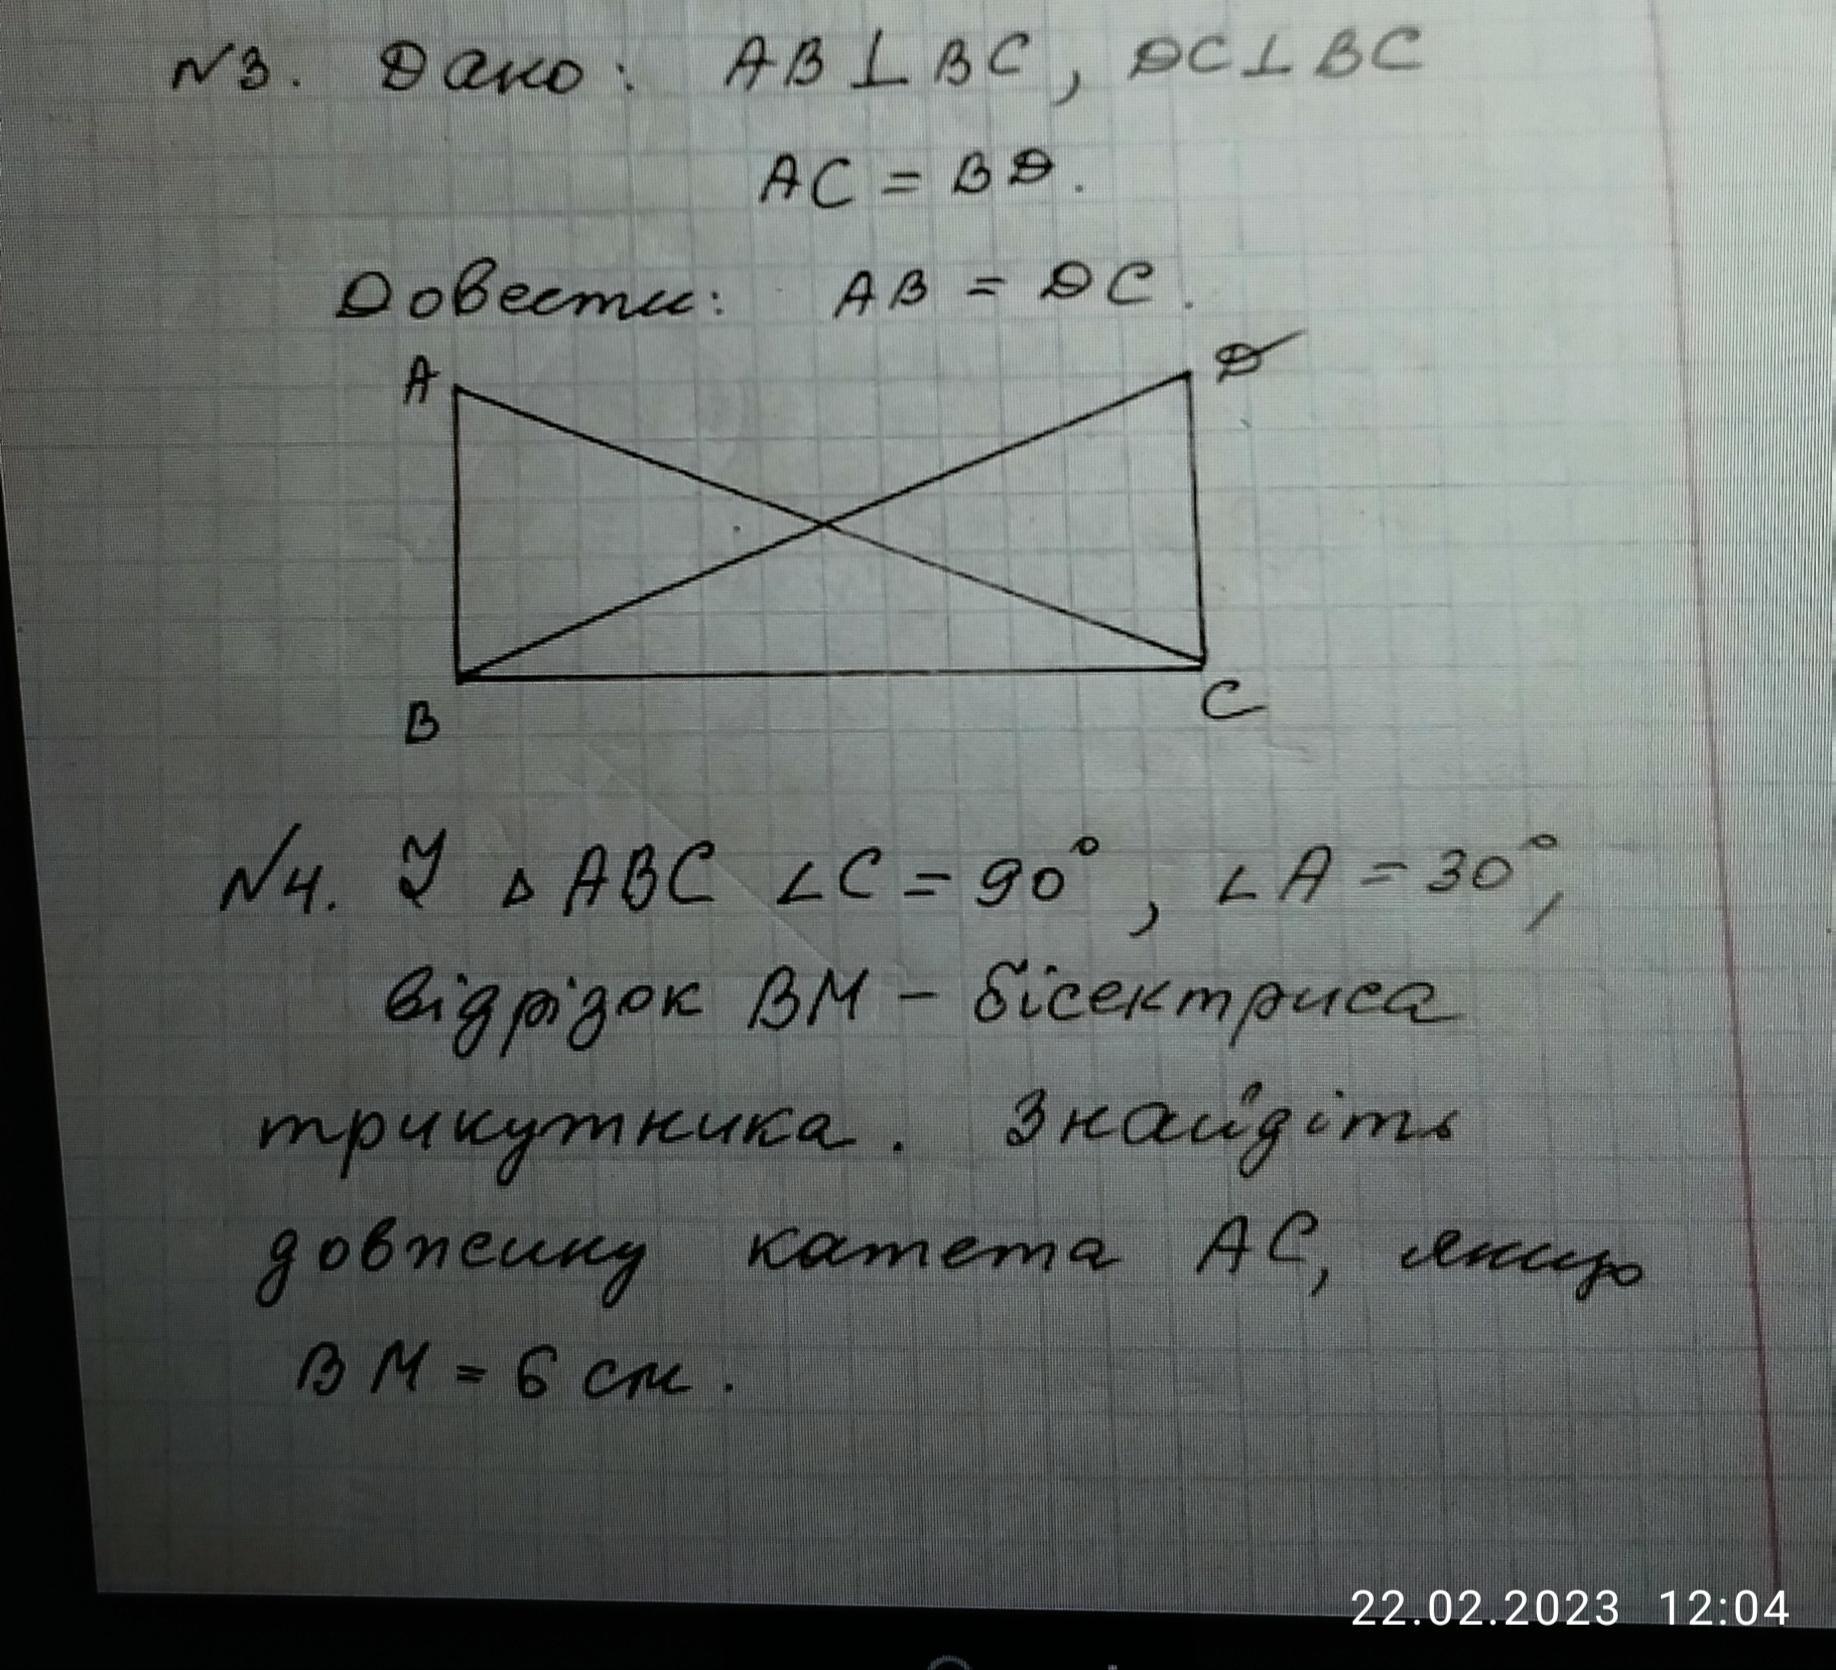 №3. Дано: AB⊥BC, DC⊥BC
AC = BD.
Довести: AB = DC.
A D
B C
№4. У △ABC ∠C = 90°, ∠A = 30°,
відрізок BM – бісектриса
трикутника. Знайдіть
довжину катета AC, якщо
BM = 6 см.
22.02.2023 12:04